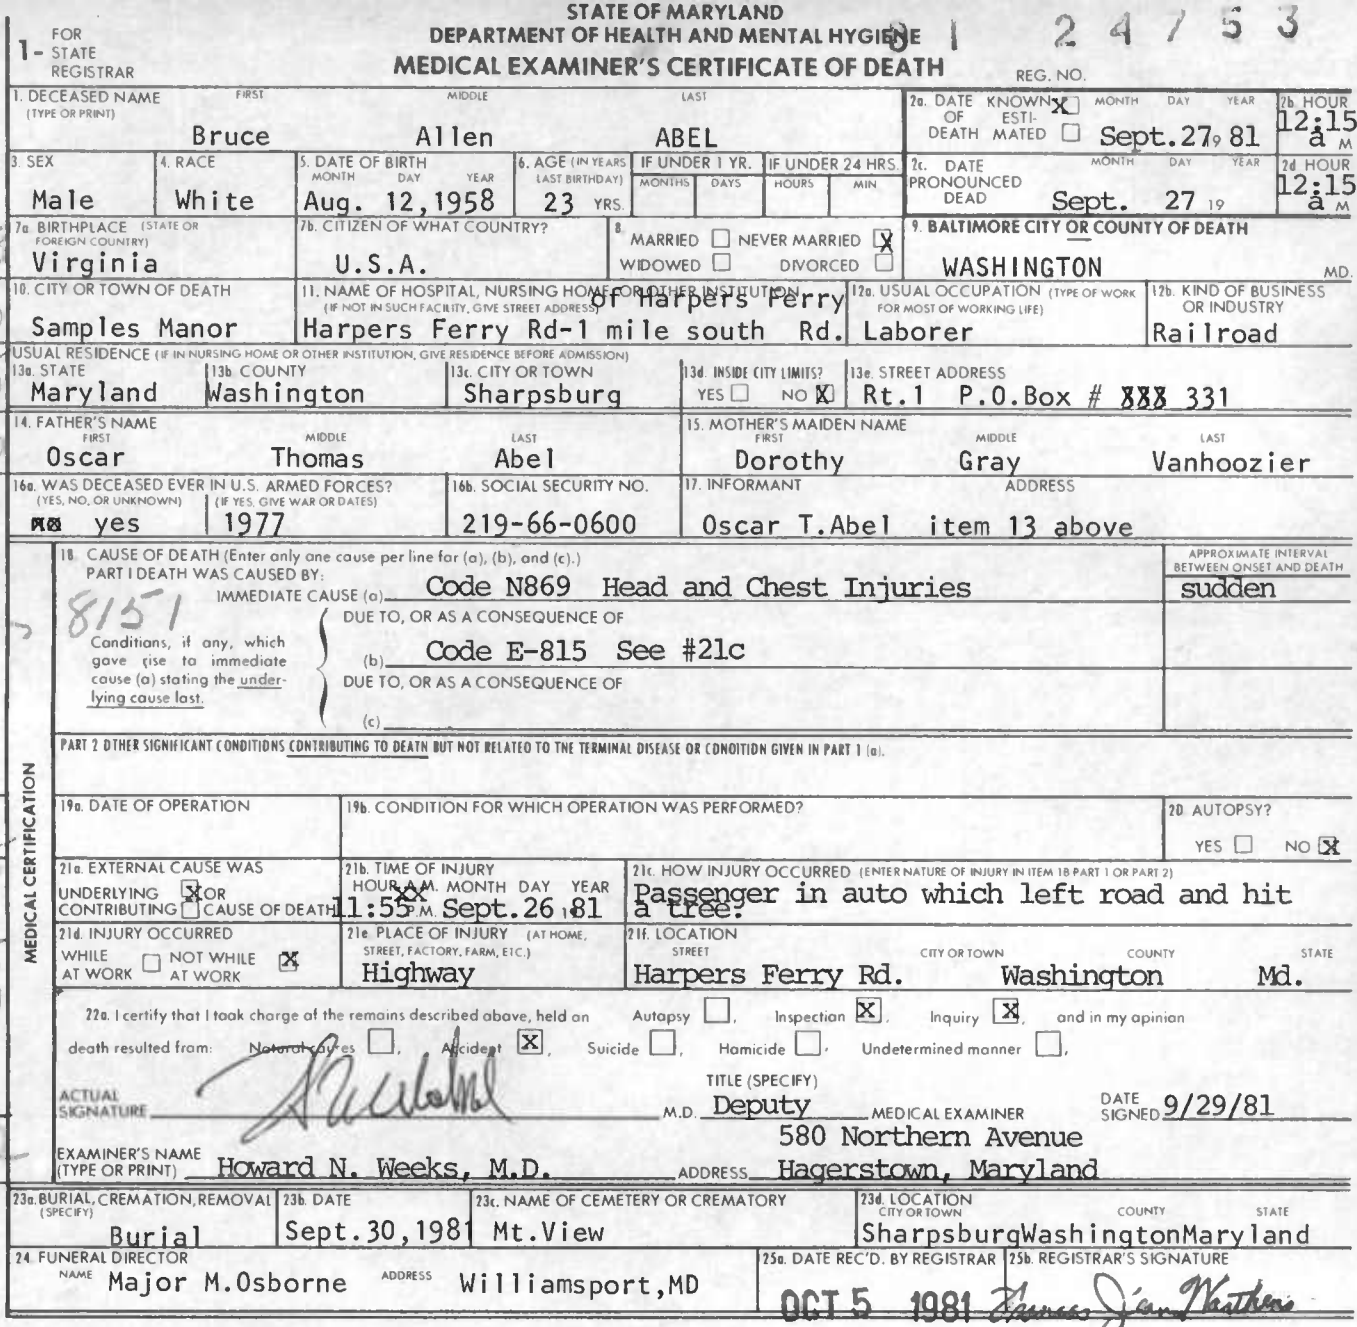 STATE OF MARYLAND
DEPARTMENT OF HEALTH AND MENTAL HYGIENE
MEDICAL EXAMINER'S CERTIFICATE OF DEATH
1- FOR STATE REGISTRAR
81 24753
REG. NO.
1. DECEASED NAME (TYPE OR PRINT) FIRST MIDDLE LAST
Bruce Allen ABEL
2a. DATE OF DEATH KNOWN X ESTIMATED MONTH DAY YEAR
Sept. 27 19 81
2b. HOUR
12:15 a M
3. SEX
Male
4. RACE
White
5. DATE OF BIRTH MONTH DAY YEAR
Aug. 12, 1958
6. AGE (IN YEARS LAST BIRTHDAY)
23 YRS.
IF UNDER 1 YR. MONTHS DAYS
IF UNDER 24 HRS. HOURS MIN
2c. DATE PRONOUNCED DEAD MONTH DAY YEAR
Sept. 27 19
2d HOUR
12:15 a M
7a. BIRTHPLACE (STATE OR FOREIGN COUNTRY)
Virginia
7b. CITIZEN OF WHAT COUNTRY?
U.S.A.
8. MARRIED NEVER MARRIED X
WIDOWED DIVORCED
9. BALTIMORE CITY OR COUNTY OF DEATH
WASHINGTON MD.
10. CITY OR TOWN OF DEATH
Samples Manor
11. NAME OF HOSPITAL, NURSING HOME OR OTHER INSTITUTION
(IF NOT IN SUCH FACILITY, GIVE STREET ADDRESS) of Harpers Ferry
Harpers Ferry Rd-1 mile south Rd.
12a. USUAL OCCUPATION (TYPE OF WORK FOR MOST OF WORKING LIFE)
Laborer
12b. KIND OF BUSINESS OR INDUSTRY
Railroad
USUAL RESIDENCE (IF IN NURSING HOME OR OTHER INSTITUTION, GIVE RESIDENCE BEFORE ADMISSION)
13a. STATE
Maryland
13b COUNTY
Washington
13c. CITY OR TOWN
Sharpsburg
13d. INSIDE CITY LIMITS?
YES NO X
13e. STREET ADDRESS
Rt.1 P.O.Box # 331
14. FATHER'S NAME FIRST MIDDLE LAST
Oscar Thomas Abel
15. MOTHER'S MAIDEN NAME FIRST MIDDLE LAST
Dorothy Gray Vanhoozier
16a. WAS DECEASED EVER IN U.S. ARMED FORCES?
(YES, NO, OR UNKNOWN) (IF YES, GIVE WAR OR DATES)
yes 1977
16b. SOCIAL SECURITY NO.
219-66-0600
17. INFORMANT ADDRESS
Oscar T.Abel item 13 above
MEDICAL CERTIFICATION
18. CAUSE OF DEATH (Enter only one cause per line for (a), (b), and (c).)
APPROXIMATE INTERVAL BETWEEN ONSET AND DEATH
PART I DEATH WAS CAUSED BY:
IMMEDIATE CAUSE (a) Code N869 Head and Chest Injuries
sudden
8151
DUE TO, OR AS A CONSEQUENCE OF
Conditions, if any, which gave rise to immediate cause (a) stating the underlying cause last.
(b) Code E-815 See #21c
DUE TO, OR AS A CONSEQUENCE OF
(c)
PART 2 OTHER SIGNIFICANT CONDITIONS CONTRIBUTING TO DEATH BUT NOT RELATED TO THE TERMINAL DISEASE OR CONDITION GIVEN IN PART 1 (a).
19a. DATE OF OPERATION
19b. CONDITION FOR WHICH OPERATION WAS PERFORMED?
20 AUTOPSY?
YES NO X
21a. EXTERNAL CAUSE WAS
UNDERLYING X OR
CONTRIBUTING CAUSE OF DEATH
21b. TIME OF INJURY
HOUR A.M. MONTH DAY YEAR
11:55 P.M. Sept. 26 19 81
21c. HOW INJURY OCCURRED (ENTER NATURE OF INJURY IN ITEM 18 PART 1 OR PART 2)
Passenger in auto which left road and hit
a tree.
21d. INJURY OCCURRED
WHILE AT WORK NOT WHILE AT WORK X
21e PLACE OF INJURY (AT HOME, STREET, FACTORY, FARM, ETC.)
Highway
21f. LOCATION
STREET CITY OR TOWN COUNTY STATE
Harpers Ferry Rd. Washington Md.
22a. I certify that I took charge of the remains described above, held an Autopsy , Inspection X , Inquiry X , and in my opinion
death resulted from: Natural causes , Accident X , Suicide , Homicide . Undetermined manner ,
ACTUAL SIGNATURE
M.D.
TITLE (SPECIFY)
Deputy MEDICAL EXAMINER
DATE SIGNED 9/29/81
580 Northern Avenue
EXAMINER'S NAME (TYPE OR PRINT) Howard N. Weeks, M.D.
ADDRESS Hagerstown, Maryland
23a. BURIAL, CREMATION, REMOVAL (SPECIFY)
Burial
23b. DATE
Sept.30,1981
23c. NAME OF CEMETERY OR CREMATORY
Mt.View
23d. LOCATION CITY OR TOWN COUNTY STATE
SharpsburgWashingtonMaryland
24. FUNERAL DIRECTOR
NAME Major M.Osborne ADDRESS Williamsport,MD
25a. DATE REC'D. BY REGISTRAR
OCT 5 1981
25b. REGISTRAR'S SIGNATURE